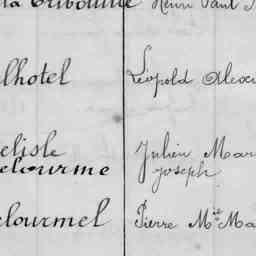 la Tribouille Henri Paul
lhotel Léopold Alexa
elisle Julien Mar
elourme Joseph
elourmel Pierre Mie Ma